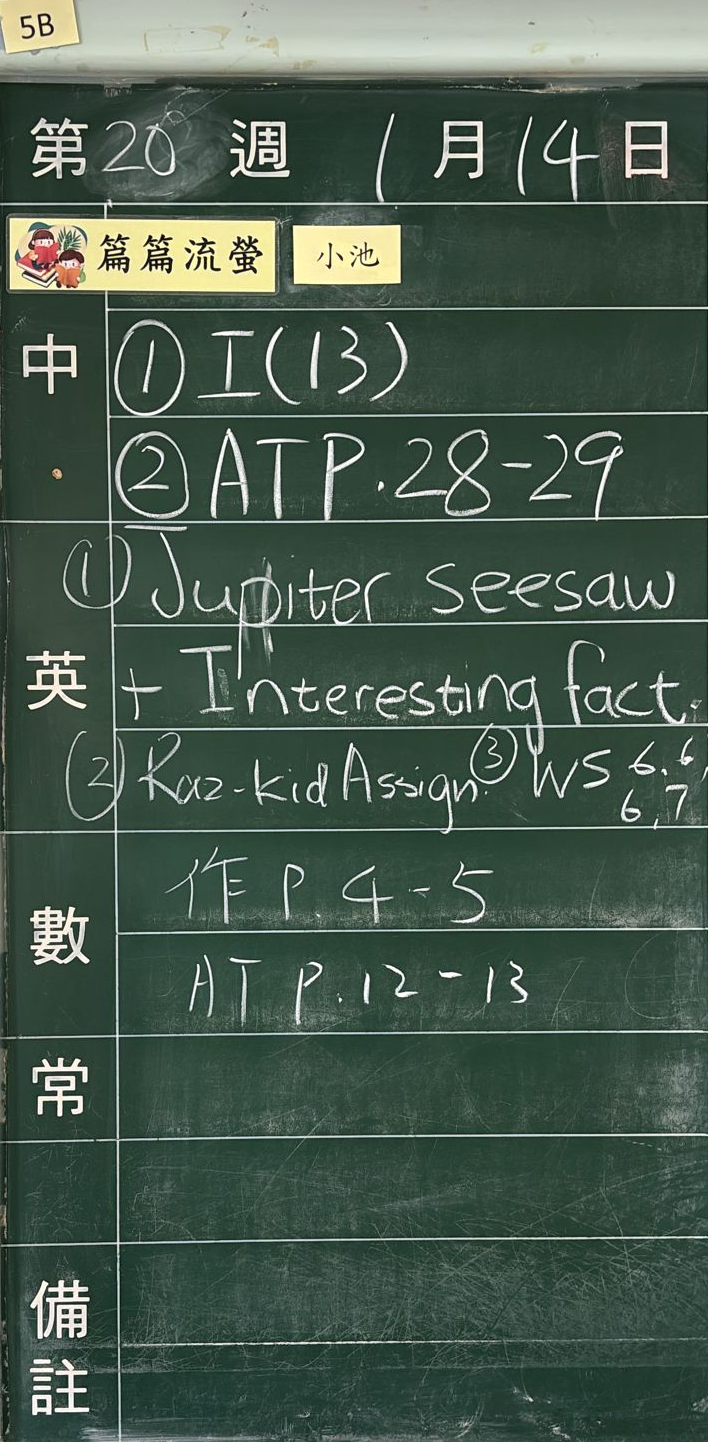 5B
第20週 1月14日
篇篇流螢 小池
中 ①I(13)
②ATP.28-29
英 ①Jupiter seesaw
+ Interesting fact.
②Raz-kid Assign. ③WS 6.6,
6,7
數 作P.4-5
ATP.12-13
常
備註